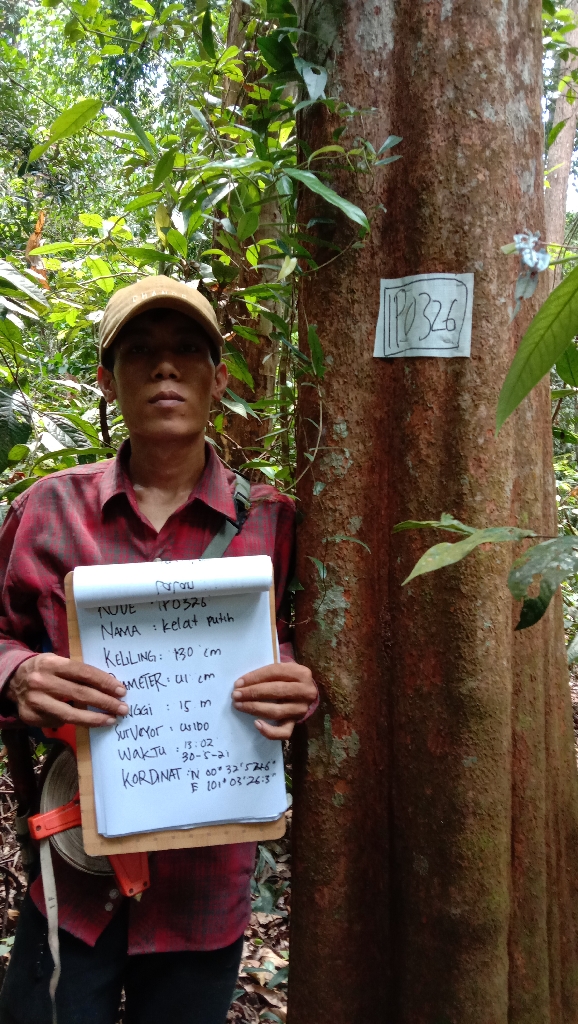 IPO326
KODE : IPO326
NAMA : kelat putih
KELILING : 130 cm
DIAMETER : 41 cm
TINGGI : 15 m
SURVEYOR : WIBO
WAKTU : 13:02
30-5-21
KORDINAT : N 00° 32' 52.6"
E 101° 03' 26.3"